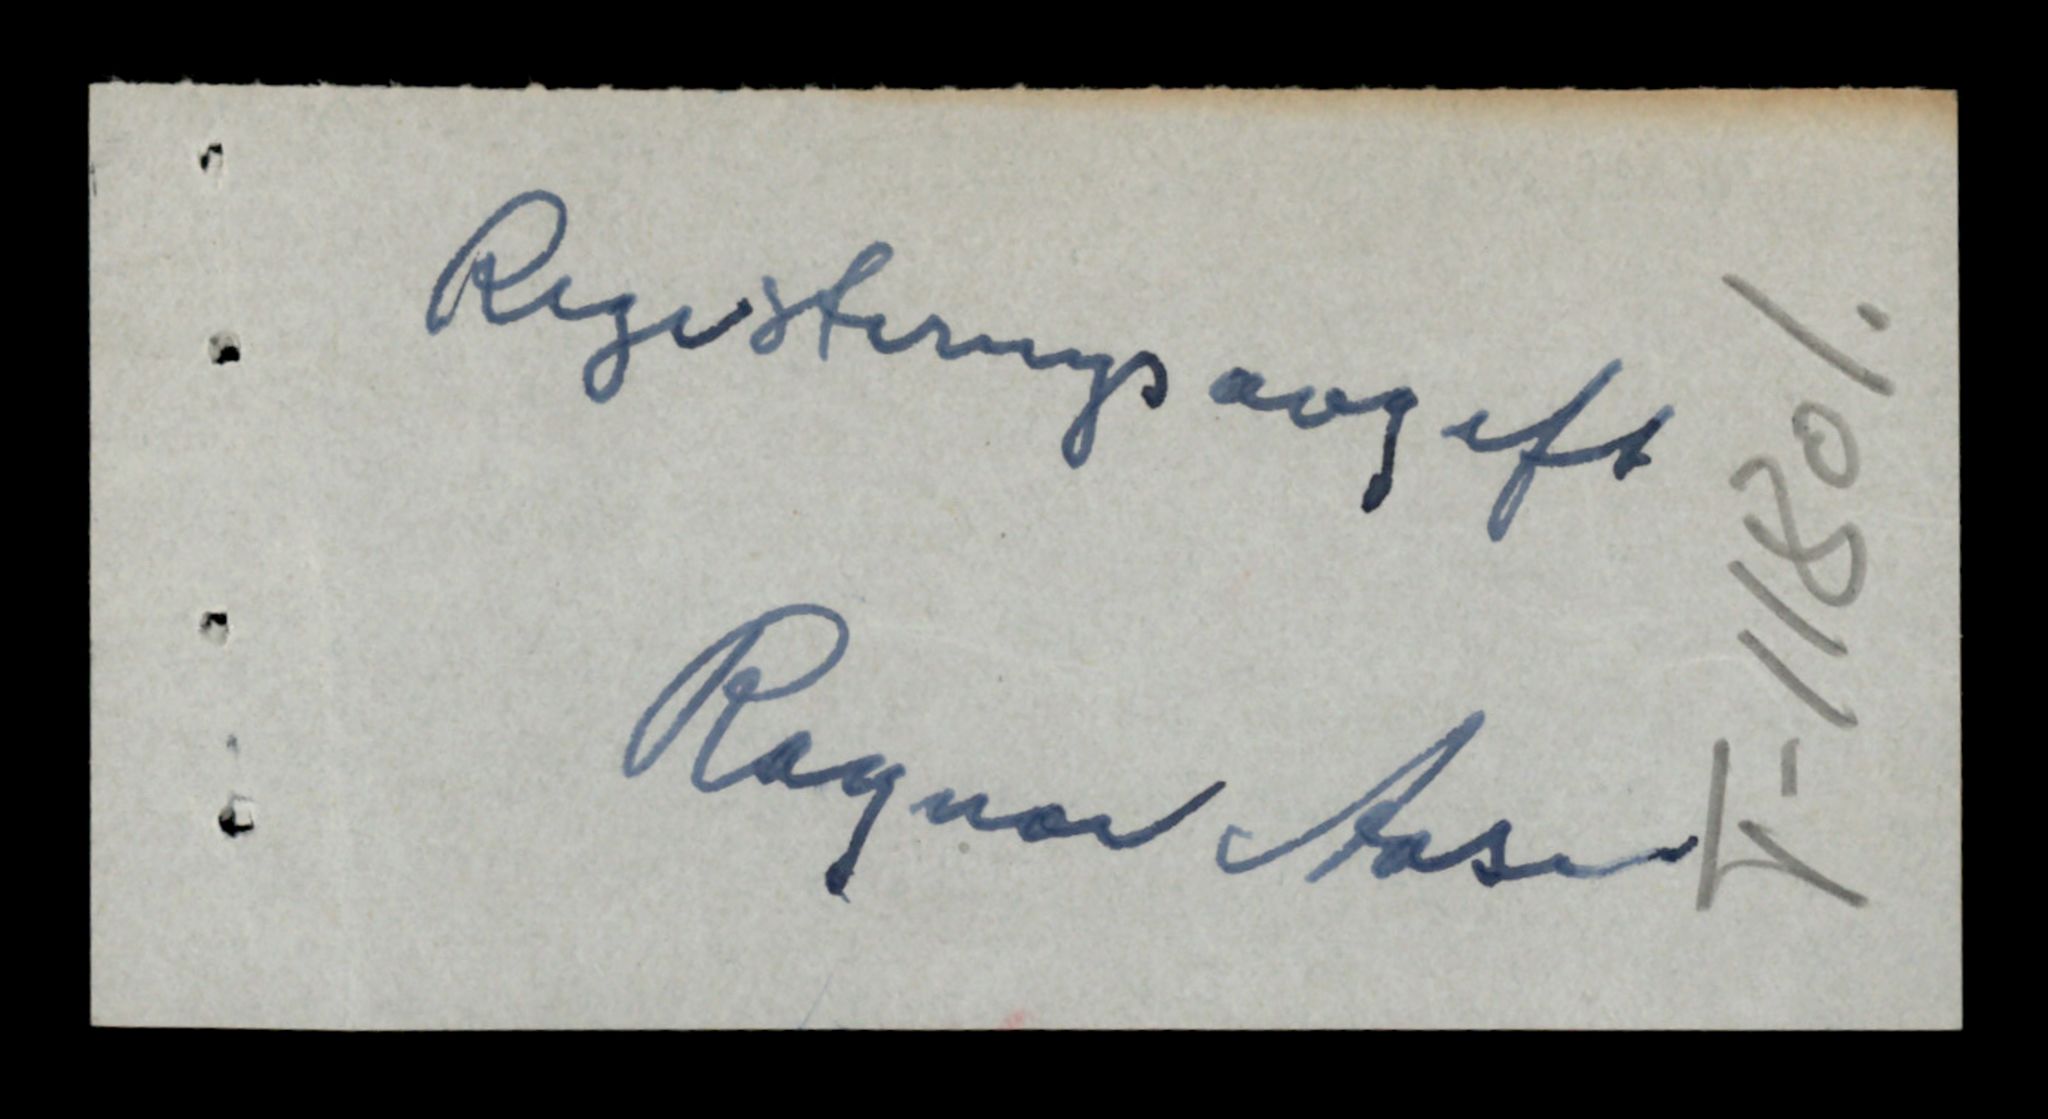 Registeringsavgift
Ragnar Aase
T-11801.